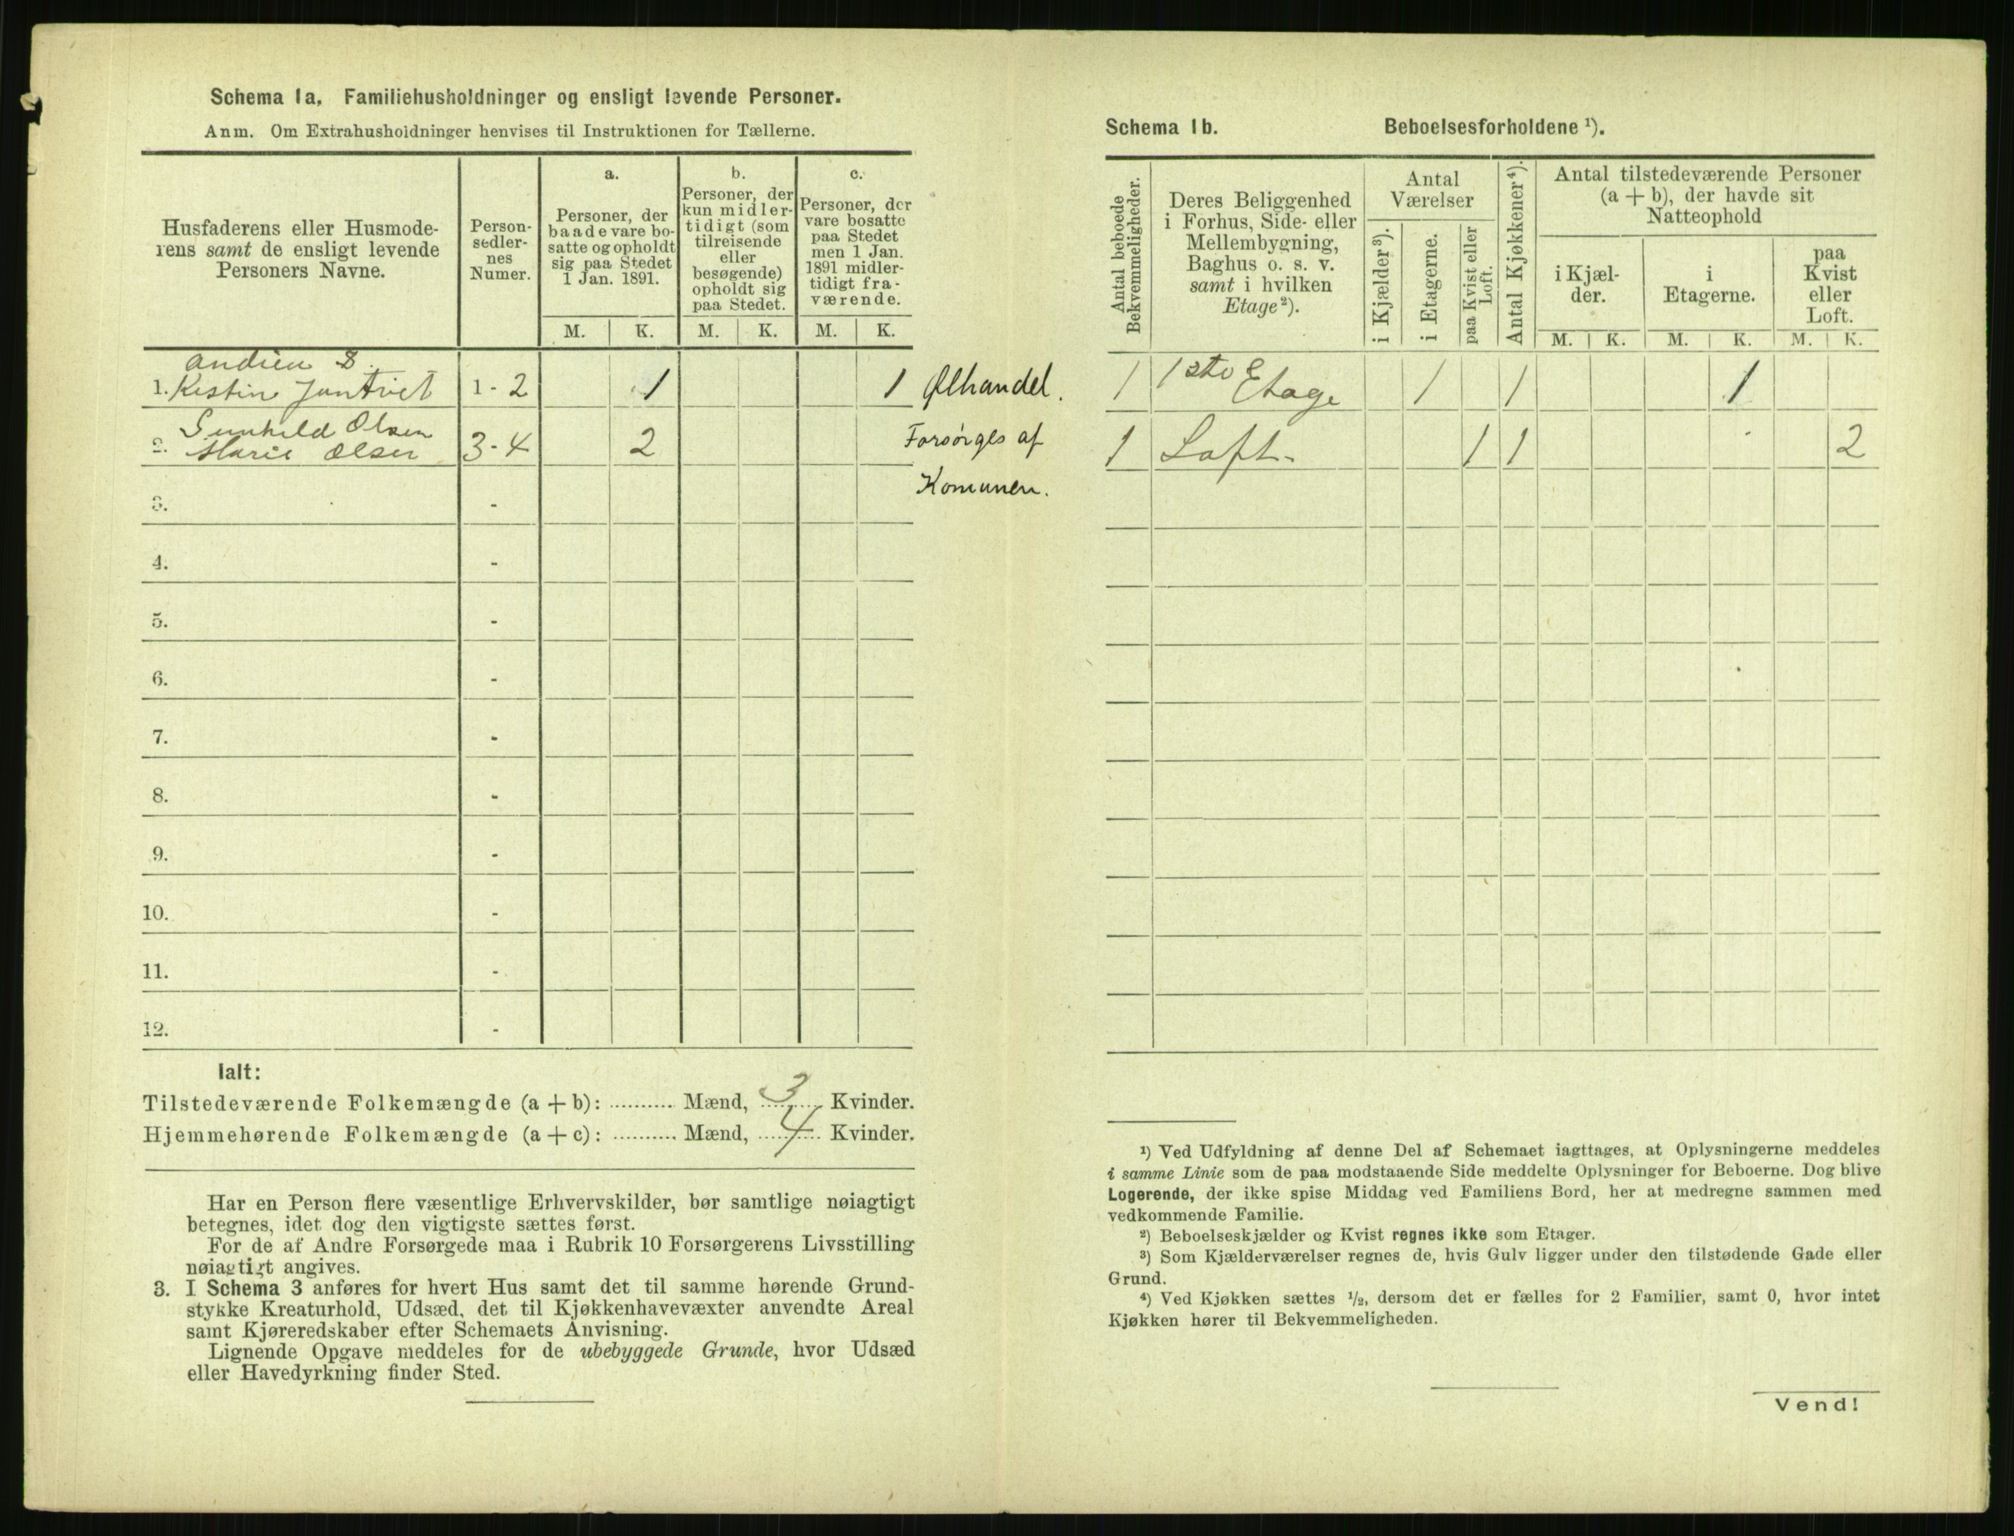 Schema 1a. Familiehusholdninger og ensligt levende Personer.
Anm. Om Extrahusholdninger henvises til Instruktionen for Tællerne.
Husfaderens eller Husmode-
rens samt de ensligt levende
Personers Navne.
Person-
sedler-
nes
Numer.
a.
Personer, der
baade vare bo-
satte og opholdt
sig paa Stedet
1 Jan. 1891.
b.
Personer, der
kun midler-
tidigt (som
tilreisende
eller
besøgende)
opholdt sig
paa Stedet.
c.
Personer, der
vare bosatte
paa Stedet
men 1 Jan.
1891 midler-
tidigt fra-
værende.
M. K. M. K. M. K.
1. Kestin 1-2 1 1 Ølhandel.
Gunhild Olsen
2. Marie Olsen 3-4 2 Forsørges af
Komunen.
3. -
4. -
5. -
6. -
7. -
8. -
9. -
10. -
11. -
12. -
Ialt:
Tilstedeværende Folkemængde (a + b): .......... Mænd, 3 Kvinder.
Hjemmehørende Folkemængde (a + c): .......... Mænd, 4 Kvinder.
Har en Person flere væsentlige Erhvervskilder, bør samtlige nøiagtigt
betegnes, idet dog den vigtigste sættes først.
For de af Andre Forsørgede maa i Rubrik 10 Forsørgerens Livsstilling
nøiagtigt angives.
3. I Schema 3 anføres for hvert Hus samt det til samme hørende Grund-
stykke Kreaturhold, Udsæd, det til Kjøkkenhavevæxter anvendte Areal
samt Kjøreredskaber efter Schemaets Anvisning.
Lignende Opgave meddeles for de ubebyggede Grunde, hvor Udsæd
eller Havedyrkning finder Sted.
Schema 1b. Beboelsesforholdene ¹).
Antal beboede
Bekvemmeligheder.
Deres Beliggenhed
i Forhus, Side- eller
Mellembygning,
Baghus o. s. v.
samt i hvilken
Etage²).
Antal
Værelser
i Kjælder³).
i Etagerne.
paa Kvist eller
Loft.
Antal Kjøkkener⁴).
Antal tilstedeværende Personer
(a + b), der havde sit
Natteophold
i Kjæl-
der.
i
Etagerne.
paa
Kvist
eller
Loft.
M. K. M. K. M. K.
1 1ste Etage 1 1 1
1 Loft- 1 1 2
¹) Ved Udfyldning af denne Del af Schemaet iagttages, at Oplysningerne meddeles
i samme Linie som de paa modstaaende Side meddelte Oplysninger for Beboerne. Dog blive
Logerende, der ikke spise Middag ved Familiens Bord, her at medregne sammen med
vedkommende Familie.
²) Beboelseskjælder og Kvist regnes ikke som Etager.
³) Som Kjælderværelser regnes de, hvis Gulv ligger under den tilstødende Gade eller
Grund.
⁴) Ved Kjøkken sættes ½, dersom det er fælles for 2 Familier, samt 0, hvor intet
Kjøkken hører til Bekvemmeligheden.
Vend!